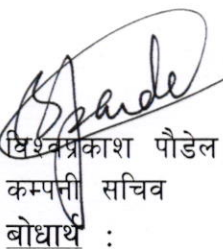 विश्वप्रकाश पौडेल
कम्पनी सचिव
बोधार्थ :